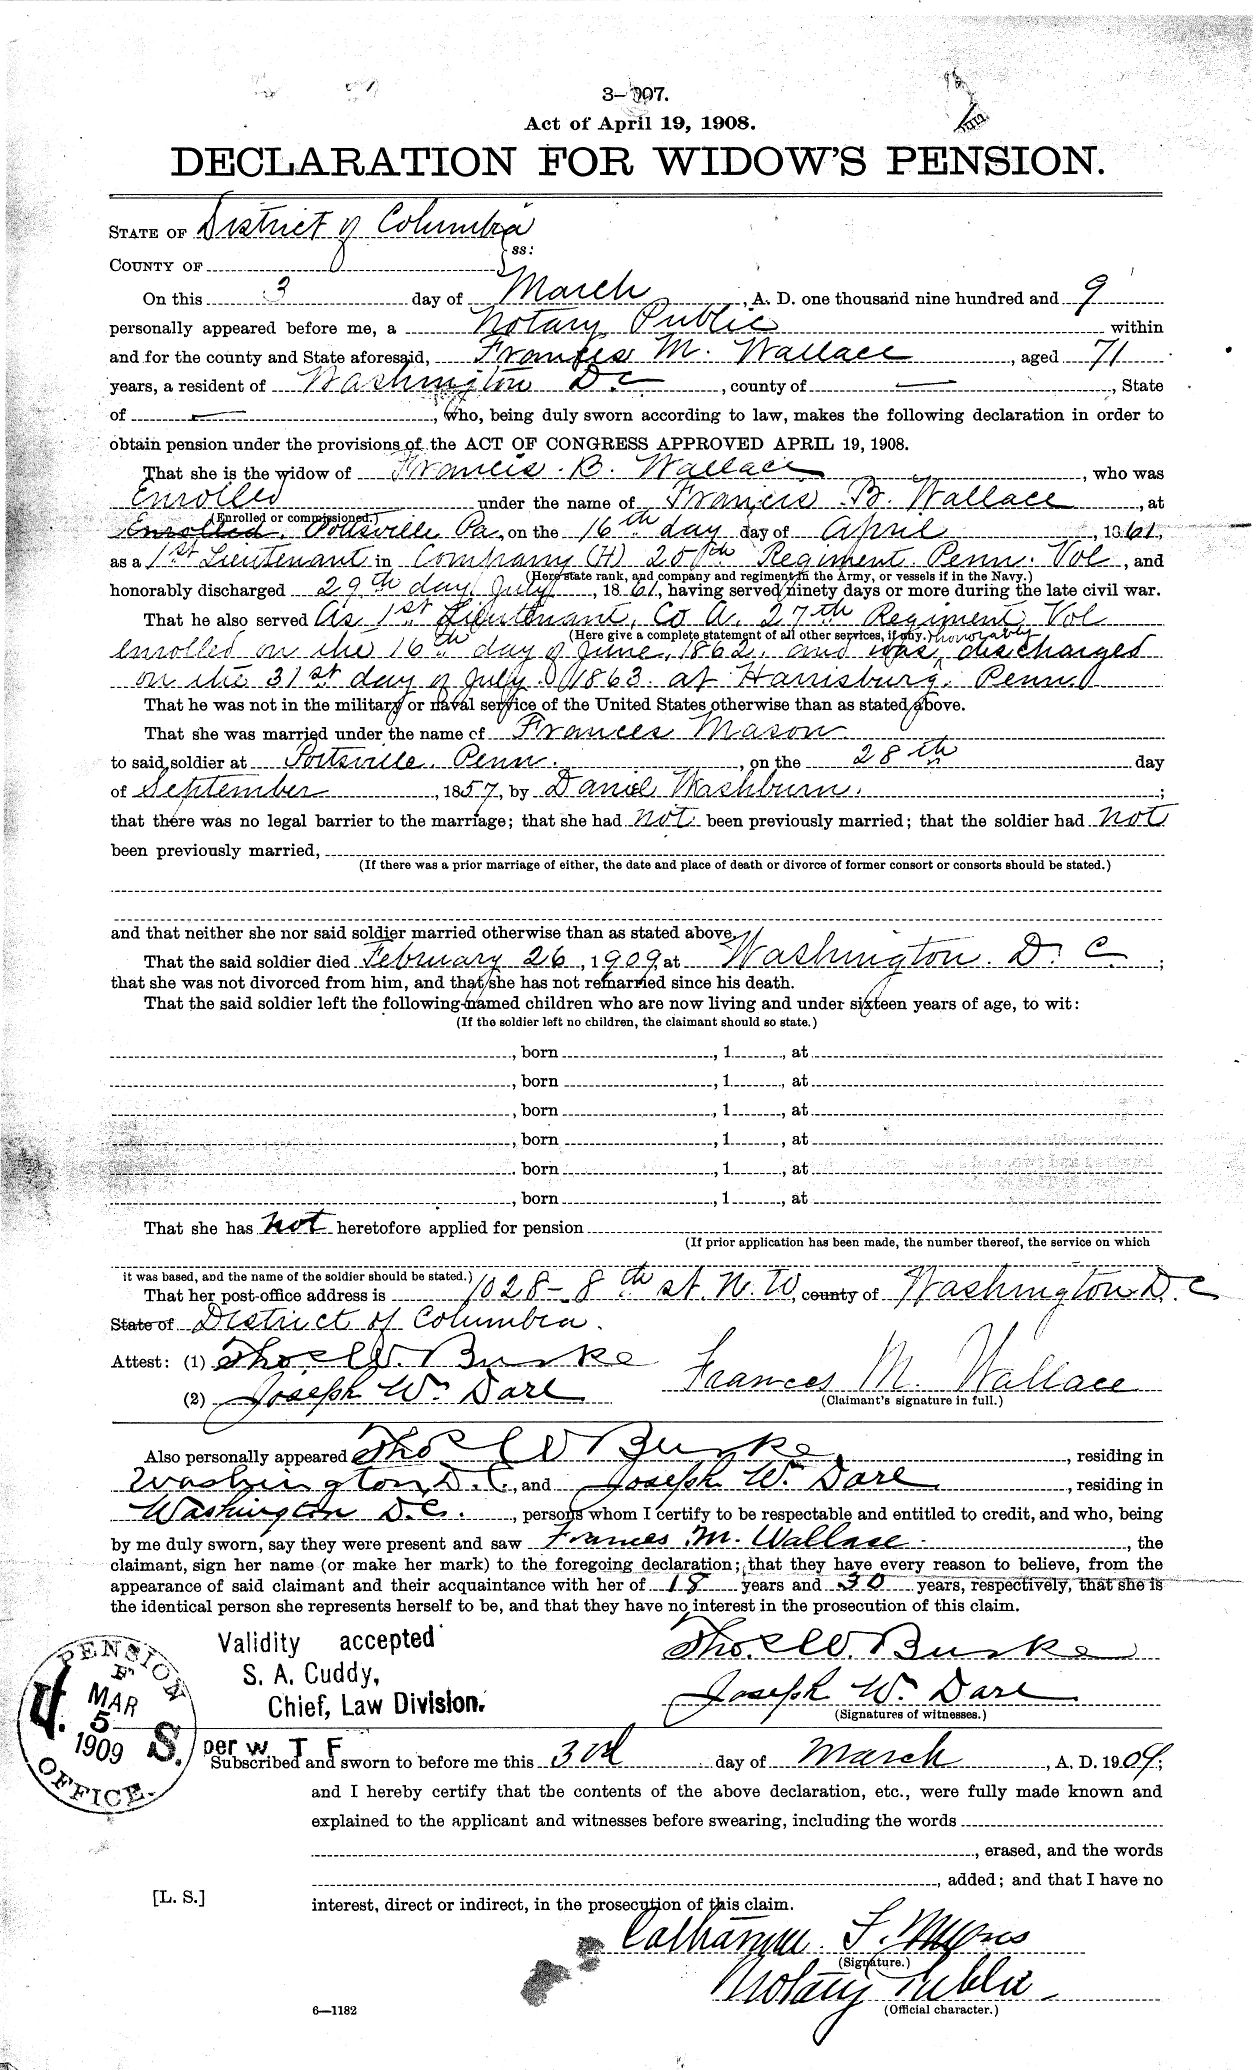 3—007.
Act of April 19, 1908.
DECLARATION FOR WIDOW'S PENSION.
STATE OF District of Columbia
ss:
COUNTY OF
On this 3 day of March, A. D. one thousand nine hundred and 9
personally appeared before me, a Notary Public within
and for the county and State aforesaid, Frances M. Wallace, aged 71
years, a resident of Washington DC, county of —, State
of —, who, being duly sworn according to law, makes the following declaration in order to
obtain pension under the provisions of the ACT OF CONGRESS APPROVED APRIL 19, 1908.
That she is the widow of Francis. B. Wallace, who was
Enrolled under the name of Francis B. Wallace, at
(Enrolled or commissioned.)
Enrolled, Pottsville Pa, on the 16th day day of April, 1861,
as a 1st Lieutenant in Company (H) 25th Regiment Penn. Vol, and
(Here state rank, and company and regiment in the Army, or vessels if in the Navy.)
honorably discharged 29th day, July, 1861, having served ninety days or more during the late civil war.
That he also served As 1st Lieutenant, Co A. 27th Regiment Vol
(Here give a complete statement of all other services, if any.) honorably
enrolled on the 16th day of June, 1862, and was discharged
on the 31st day of July. 1863. at Harrisburg, Penn.
That he was not in the military or naval service of the United States otherwise than as stated above.
That she was married under the name of Frances Mason
to said soldier at Pottsville. Penn., on the 28th day
of September, 1857, by Daniel Washburn.;
that there was no legal barrier to the marriage; that she had not been previously married; that the soldier had not
been previously married,
(If there was a prior marriage of either, the date and place of death or divorce of former consort or consorts should be stated.)
and that neither she nor said soldier married otherwise than as stated above.
That the said soldier died February 26, 1909, at Washington. D. C.;
that she was not divorced from him, and that she has not remarried since his death.
That the said soldier left the following-named children who are now living and under sixteen years of age, to wit:
(If the soldier left no children, the claimant should so state.)
, born , 1 , at
, born , 1 , at
, born , 1 , at
, born , 1 , at
, born , 1 , at
, born , 1 , at
That she has not heretofore applied for pension
(If prior application has been made, the number thereof, the service on which
it was based, and the name of the soldier should be stated.)
That her post-office address is 1028-8th st. N. W, county of Washington D. C
State of District of Columbia.
Attest: (1) Thos W. Burke
(2) Joseph Wm Dare
Frances M. Wallace
(Claimant's signature in full.)
Also personally appeared Thos W Burke, residing in
Washington, D. C., and Joseph Wm Dare, residing in
Washington D. C., persons whom I certify to be respectable and entitled to credit, and who, being
by me duly sworn, say they were present and saw Frances M. Wallace, the
claimant, sign her name (or make her mark) to the foregoing declaration; that they have every reason to believe, from the
appearance of said claimant and their acquaintance with her of 18 years and 30 years, respectively, that she is
the identical person she represents herself to be, and that they have no interest in the prosecution of this claim.
Validity accepted
S. A. Cuddy,
Chief, Law Division.
per W T F
Thos W. Burke
Joseph Wm Dare
(Signatures of witnesses.)
U. S. PENSION OFFICE.
MAR
5
1909
Subscribed and sworn to before me this 3rd day of March, A. D. 1909;
and I hereby certify that the contents of the above declaration, etc., were fully made known and
explained to the applicant and witnesses before swearing, including the words
, erased, and the words
, added; and that I have no
[L. S.]
interest, direct or indirect, in the prosecution of this claim.
F. Myers
(Signature.)
Notary Public
(Official character.)
6—1182